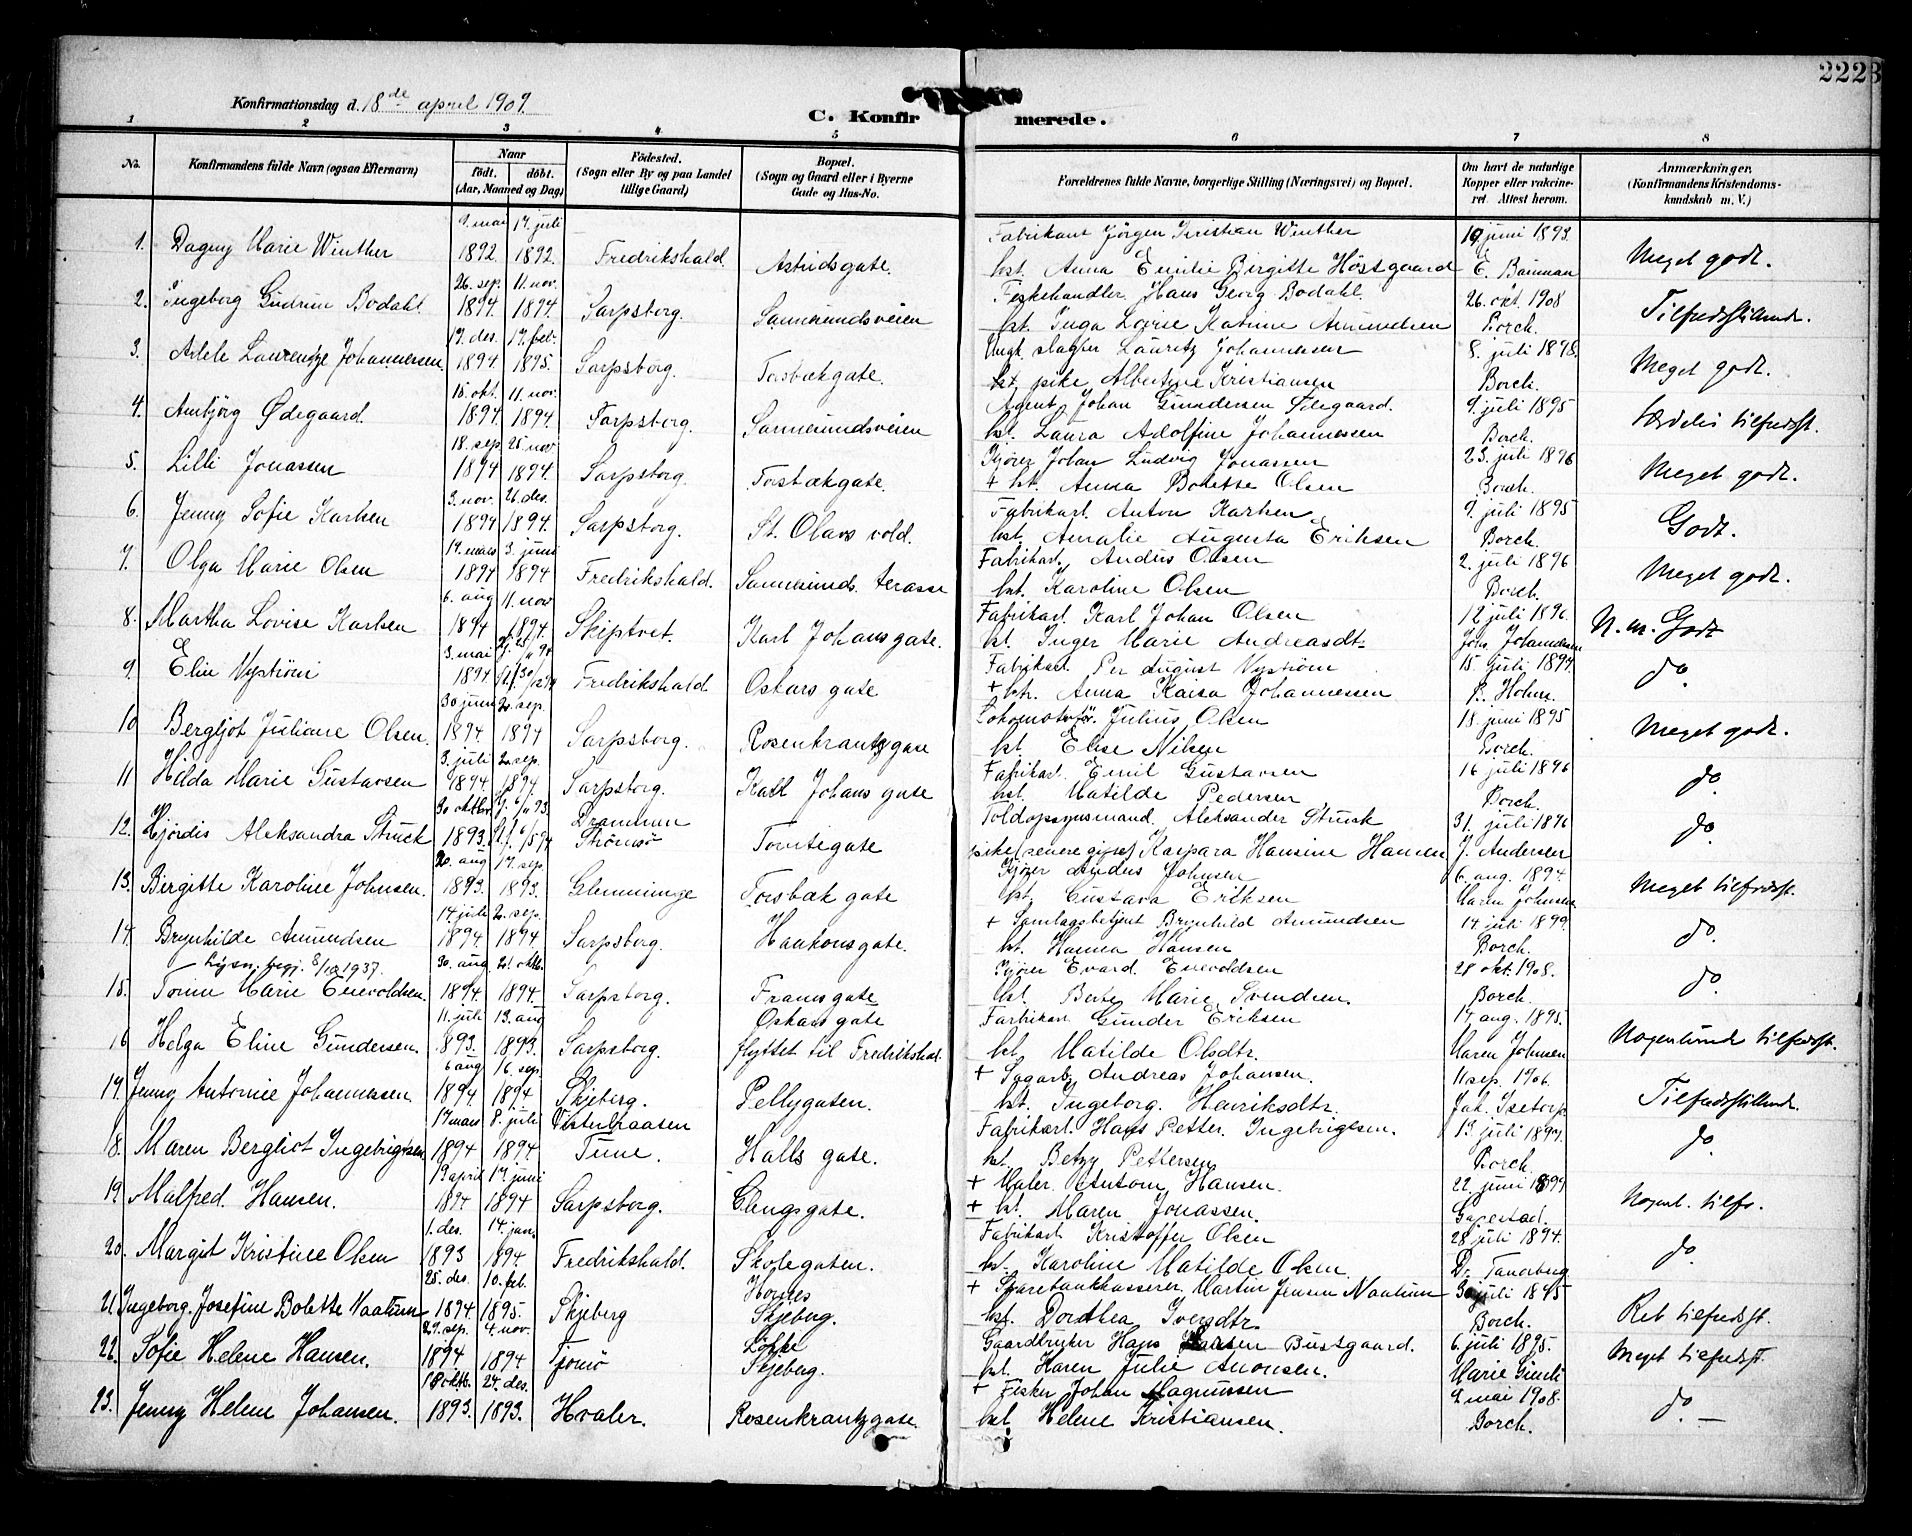 2223
Konfirmationsdag d. 18de april 1909.
C. Konfirmerede.
1 2 3 4 5 6 7 8
No. Konfirmandens fulde Navn (ogsaa Efternavn) Naar født. døbt. (Aar, Maaned og Dag) Fødested. (Sogn eller By og paa Landet tillige Gaard) Bopæl. (Sogn og Gaard eller i Byerne Gade og Hus-No. Forældrenes fulde Navne, borgerlige Stilling (Næringsvei) og Bopæl. Om havt de naturlige Kopper eller vakcineret. Attest herom. Anmærkninger. (Konfirmandens Kristendomskundskab m. V.)
9. mai 17. juli Fabrikant Jörgen Kristian Winther 19 juni 1893.
1. Dagny Marie Winther 1892 1892. Fredrikshald. Astridsgate. hst. Anna Emilie Birgitte Höstgaard E. Bauman Meget godt.
26. sep. 11. nov. Fiskehandler Hans Georg Bodahl. 26. okt. 1908
2. Ingeborg Gudrun Bodahl 1894. 1894. Sarpsborg. Sannesundsveien hst. Inga Lovise Katrine Amundsen Borch. Tilfredsstillende.
17. des. 17. feb. Ungk. slagter Lauritz Johannesen 8. juli 1898.
3. Adele Laurentze Johannesen 1894 1895. Sarpsborg. Torsbækgate. pike Albertine Kristiansen Borch. Meget godt.
15. okt. 11. nov. Agent Johan Gundersen Ødegaard. 9. juli 1895
4. Ambjörg Ødegaard. 1894 1894 Sarpsborg. Sannesundsveien hst. Laura Adolfine Johannessen Borch. Særdeles tilfredsst.
18. sep. 25. nov. Kjörer Johan Ludvig Jonassen 23. juli 1896
5. Lilli Jonassen 1894 1894. Sarpsborg. Torsbækgate. + hst. Anna Bolette Olsen Borch. Meget godt.
3. nov. 26. des. Fabrikarb. Anton Karlsen 9. juli 1895
6. Jenny Sofie Karlsen 1894 1894. Sarpsborg. St. Olavs vold. hst. Amalie Augusta Eriksen Borch. Godt.
17. mars 3. juni Fabrikarb. Andus Olsen 2. juli 1896
7. Olga Marie Olsen 1894 1894 Fredrikshald. Sannesunds. terasse hst. Karoline Olsen Borch. Meget godt.
6. aug 11. nov Fabrikarb. Karl Johan Olsen 12 juli 1896.
8. Martha Lovise Karlsen 1894 1894. Skiptvet. Karl Johans gate. hst. Inger Marie Andreasdt. Johs. Johannessen N. m. Godt
3. mai Fabrikarb. Per August Nyström 15. juli 1894.
9. Elin Nyström 1894 Fredrikshald. Oskars gate + hst. Anna Kaisa Johannessen P. Holm. do.
30 juni 2. sep. Lokomotivför. Julius Olsen 18. juni 1895
10 Bergljot Juliane Olsen. 1894 1894 Sarpsborg. Rosenkrantzgate hst. Elise Nilsen Borch. Meget godt.
3. juli 2. sep. Fabrikarb. Emil Gustavsen 16 juli 1896
11 Hilda Marie Gustavsen 1894. 1894. Sarpsborg. Karl Johans gate hst. Matilde Pedersen Borch. do
30 oktbr. Drammen Toldopsynsmand. Aleksander Struck 31. juli 1896
12. Hjördis Aleksandra Struck 1893. Strömsö Tomtegate pike (senere gift) Kaspara Hansine Hansen J. Andersen do.
20. aug 17. sep. Kjörer Anders Johnsen 6. aug. 1894
13. Birgitte Karoline Johnsen. 1893. 1893. Glemminge Torsbæk gate hst. Gustava Eriksen Maren Johnsen Meget tilfredsst.
14 juli 2. sep. + Samlagsbetjent Brynhild Amundsen 14 juli 1899.
14. Brynhilde Amundsen 1894. 1894. Sarpsborg. Haakonsgate. hst. Hanna Hansen Borch. do.
Lysn. begj. 8/12 1937. 30. aug 21. oktb. Kjörer Evard. Enevoldsen 28 okt. 1908.
15. Marie Enevoldsen. 1894. 1894. Sarpsborg. Framsgate hst. Berte Marie Svendsen. Borch. do.
11. juli 13. aug Oskars gate Fabrikarb Gunder Eriksen 17 aug. 1895.
16 Helga Eline Gundersen. 893. 1893. Sarpsborg. flyttet til Fredrikshal. hst. Matilde Olsdtr. Maren Johnsen Nogenlunde tilfredsst.
6 aug 16. sep. + Sagarb. Andreas Johansen. 11 sep. 1906.
17. Jenny Antonie Johannessen. 1894 1894 Skjeberg. Pellygaten. hst. Ingeborg. Henriksdtr. Jak. Isetorp Tilfredsstillende.
17 mars 8. juli Fabrikarb. Hans Petter. Ingebrigtsen. 13. juli 1897.
18. Maren Bergliot Ingebrigtsen 1894 1894 Tune. Halls gate. hst. Betzy Pettersen Borch. do.
19 april 17. juni + Maler Antom Hansen. 22. juni 1899
19. Malfred. Hansen. 1894 1894 Sarpsborg. Glengsgate. + hst. Maren Jonassen. Nogenl. tilfr.
1. des. 14. jan. Fabrikarb Kristoffer Olsen 28 juli 1894.
20. Margit Kristine Olsen 1893 1894. Fredrikshald. Skolegaten. hst. Karoline Matilde Olsen Dr. Tanberg do
25. des. 10. feb. Hornes + Sparebankkasserer Martin Jensen Naatum juli 1895
21. Ingeborg. Josefine Bolette Naatum 1894 1895. Skjeberg Skjeberg. hst. Dorthea Iversdtr. Borch. Ret tilfredsst.
29. sep. 4. nov. Lökke Gaardbruker Hans Hansen Bustgaard. 6. juli 1895.
22. Sofie Helene Hansen. 1894 1894 Tjömö Skjeberg. hst. Karen Julie Anonsen. Marie Meget tilfredsst.
18 oktb. 24. des. + Fisker Johan Magnussen 4 mai 1908.
23. Jenny Helene Johansen. 1893. 1893. Hvaler. Rosenkrantzgate. hst. Helene Kristiansen. Borch. do. —